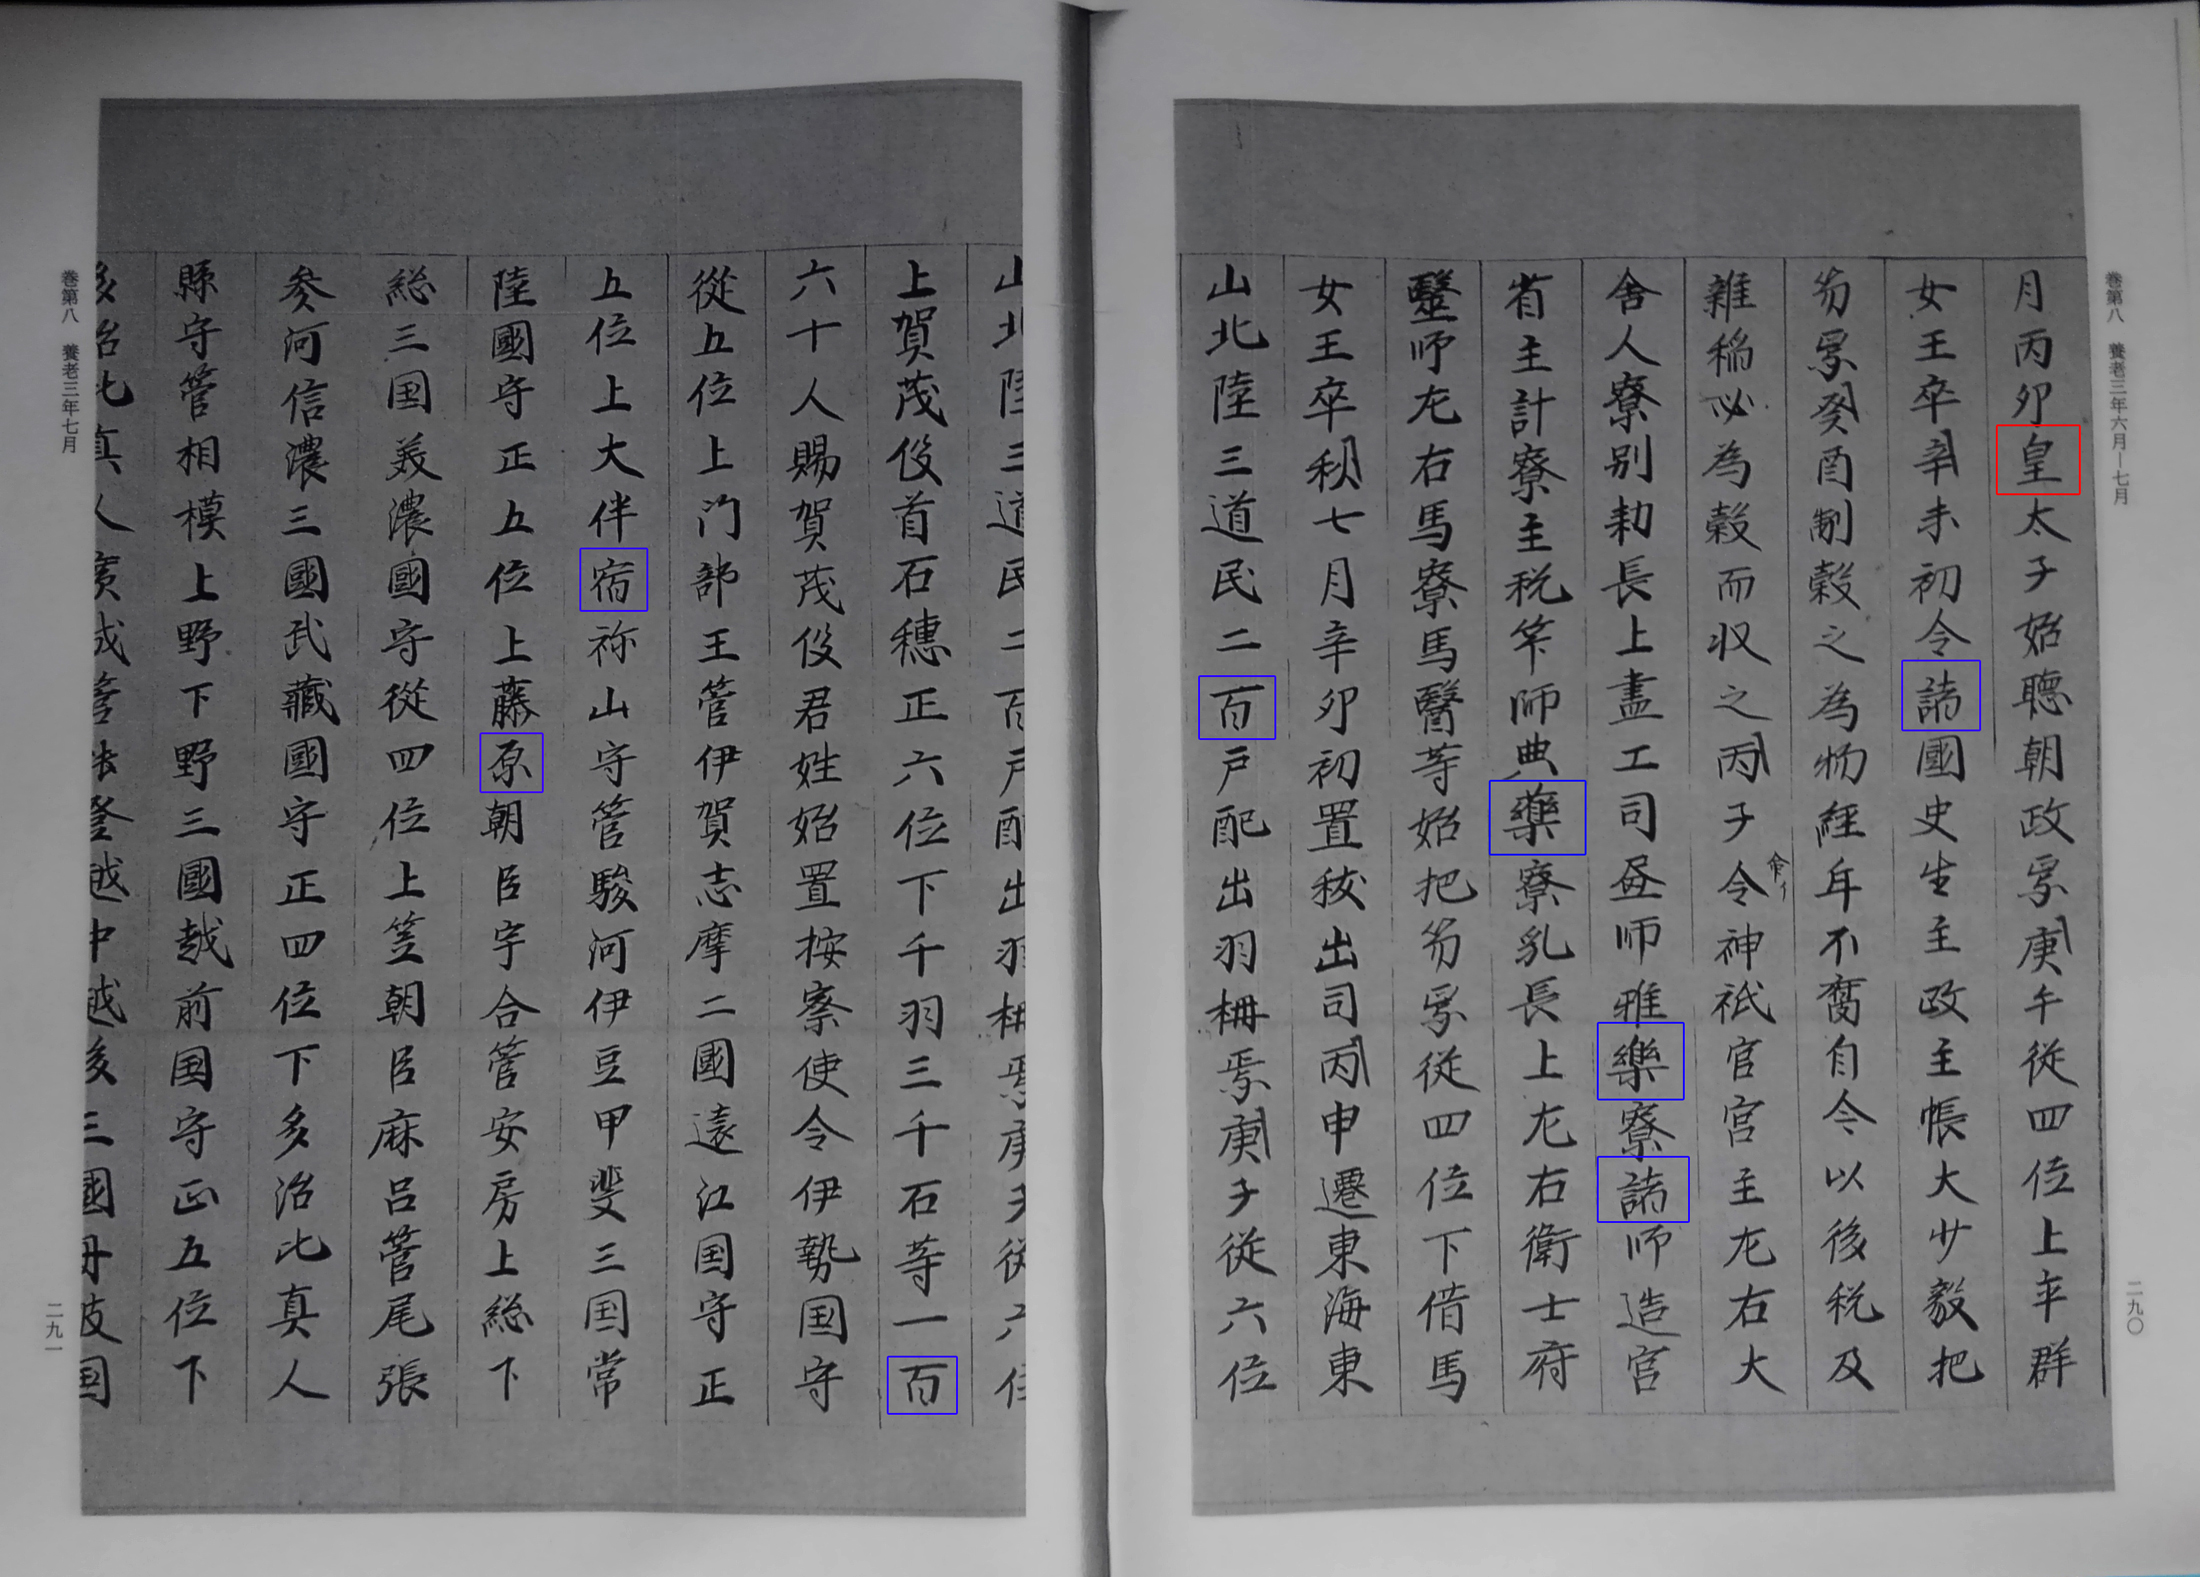 卷第八　養老三年六月—七月
二九〇
月丙卯皇太子始聴朝政焉庚午従四位上平群
女王卒辛未初令諸國史生主政主帳大少毅把
笏焉癸酉制穀之為物經年不腐自今以後税及
雑稲必為穀而収之丙子令神祇官宮主左右大
舎人寮別勅長上畫工司畫師雅樂寮諸師造宮
省主計寮主税竿師典藥寮乳長上左右衛士府
醫師左右馬寮馬醫等始把笏焉従四位下借馬
女王卒秋七月辛卯初置秡出司丙申遷東海東
山北陸三道民二百戸配出羽柵焉庚子従六位
卷第八　養老三年七月
二九一
山北陸三道民二百戸配出羽柵焉庚子従六位
上賀茂伇首石穗正六位下千羽三千石等一百
六十人賜賀茂伇君姓始置按察使令伊勢国守
從五位上門部王管伊賀志摩二國遠江国守正
五位上大伴宿祢山守管駿河伊豆甲斐三国常
陸國守正五位上藤原朝臣宇合管安房上総下
総三国美濃國守從四位上笠朝臣麻呂管尾張
參河信濃三國武藏國守正四位下多治比真人
縣守管相模上野下野三國越前国守正五位下
多治比真人廣成管能登越中越後三國丹波国